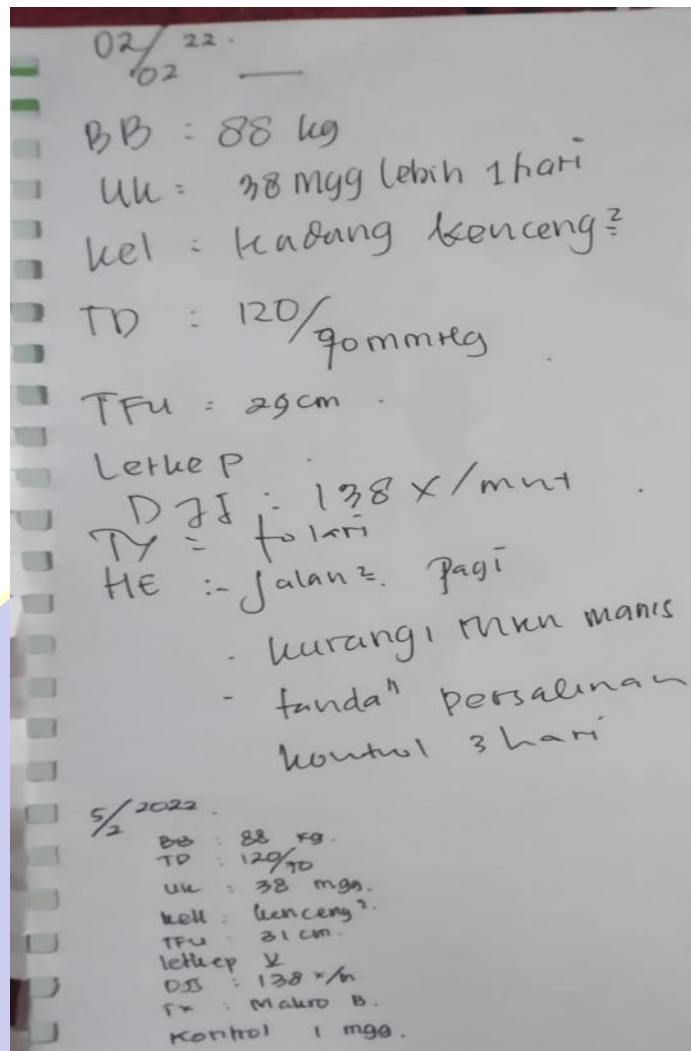 02/02 22.
BB : 88 kg
UK : 38 mgg lebih 1 hari
kel : kadang kenceng²
TD : 120/90 mmHg
TFU : 29 cm
Letkep
DJJ : 138 x/mnt
Tx :
HE : - Jalan². Pagi
- kurangi mkn manis
- tanda" persalinan
kontrol 3 hari
5/2 2022.
BB : 88 kg.
TD : 120/90
UK : 38 mgg.
kell : kenceng².
TFU 31 cm.
letkep
DJJ : 138 x/m
Tx : Makro B.
Kontrol 1 mgg.